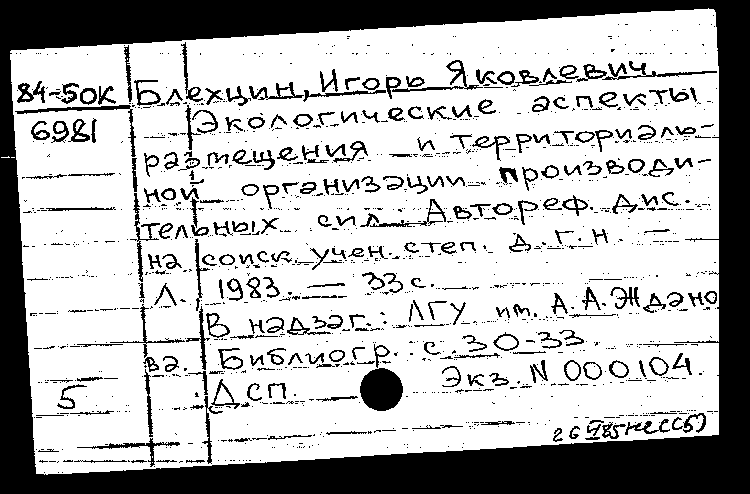 84-5ОК Блехцин, Игорь Яковлевич.
6981 Экологические аспекты
размещения и территориаль-
ной организации производи-
тельных сил. Автореф. дис.
на соиск. учен. степ. д.г.н. —
Л., 1983. — 33 с.
В надзаг.: ЛГУ им. А.А.Ждано
ва. Библиогр.: с. 30-33.
5 ДСП. Экз. N 000104.